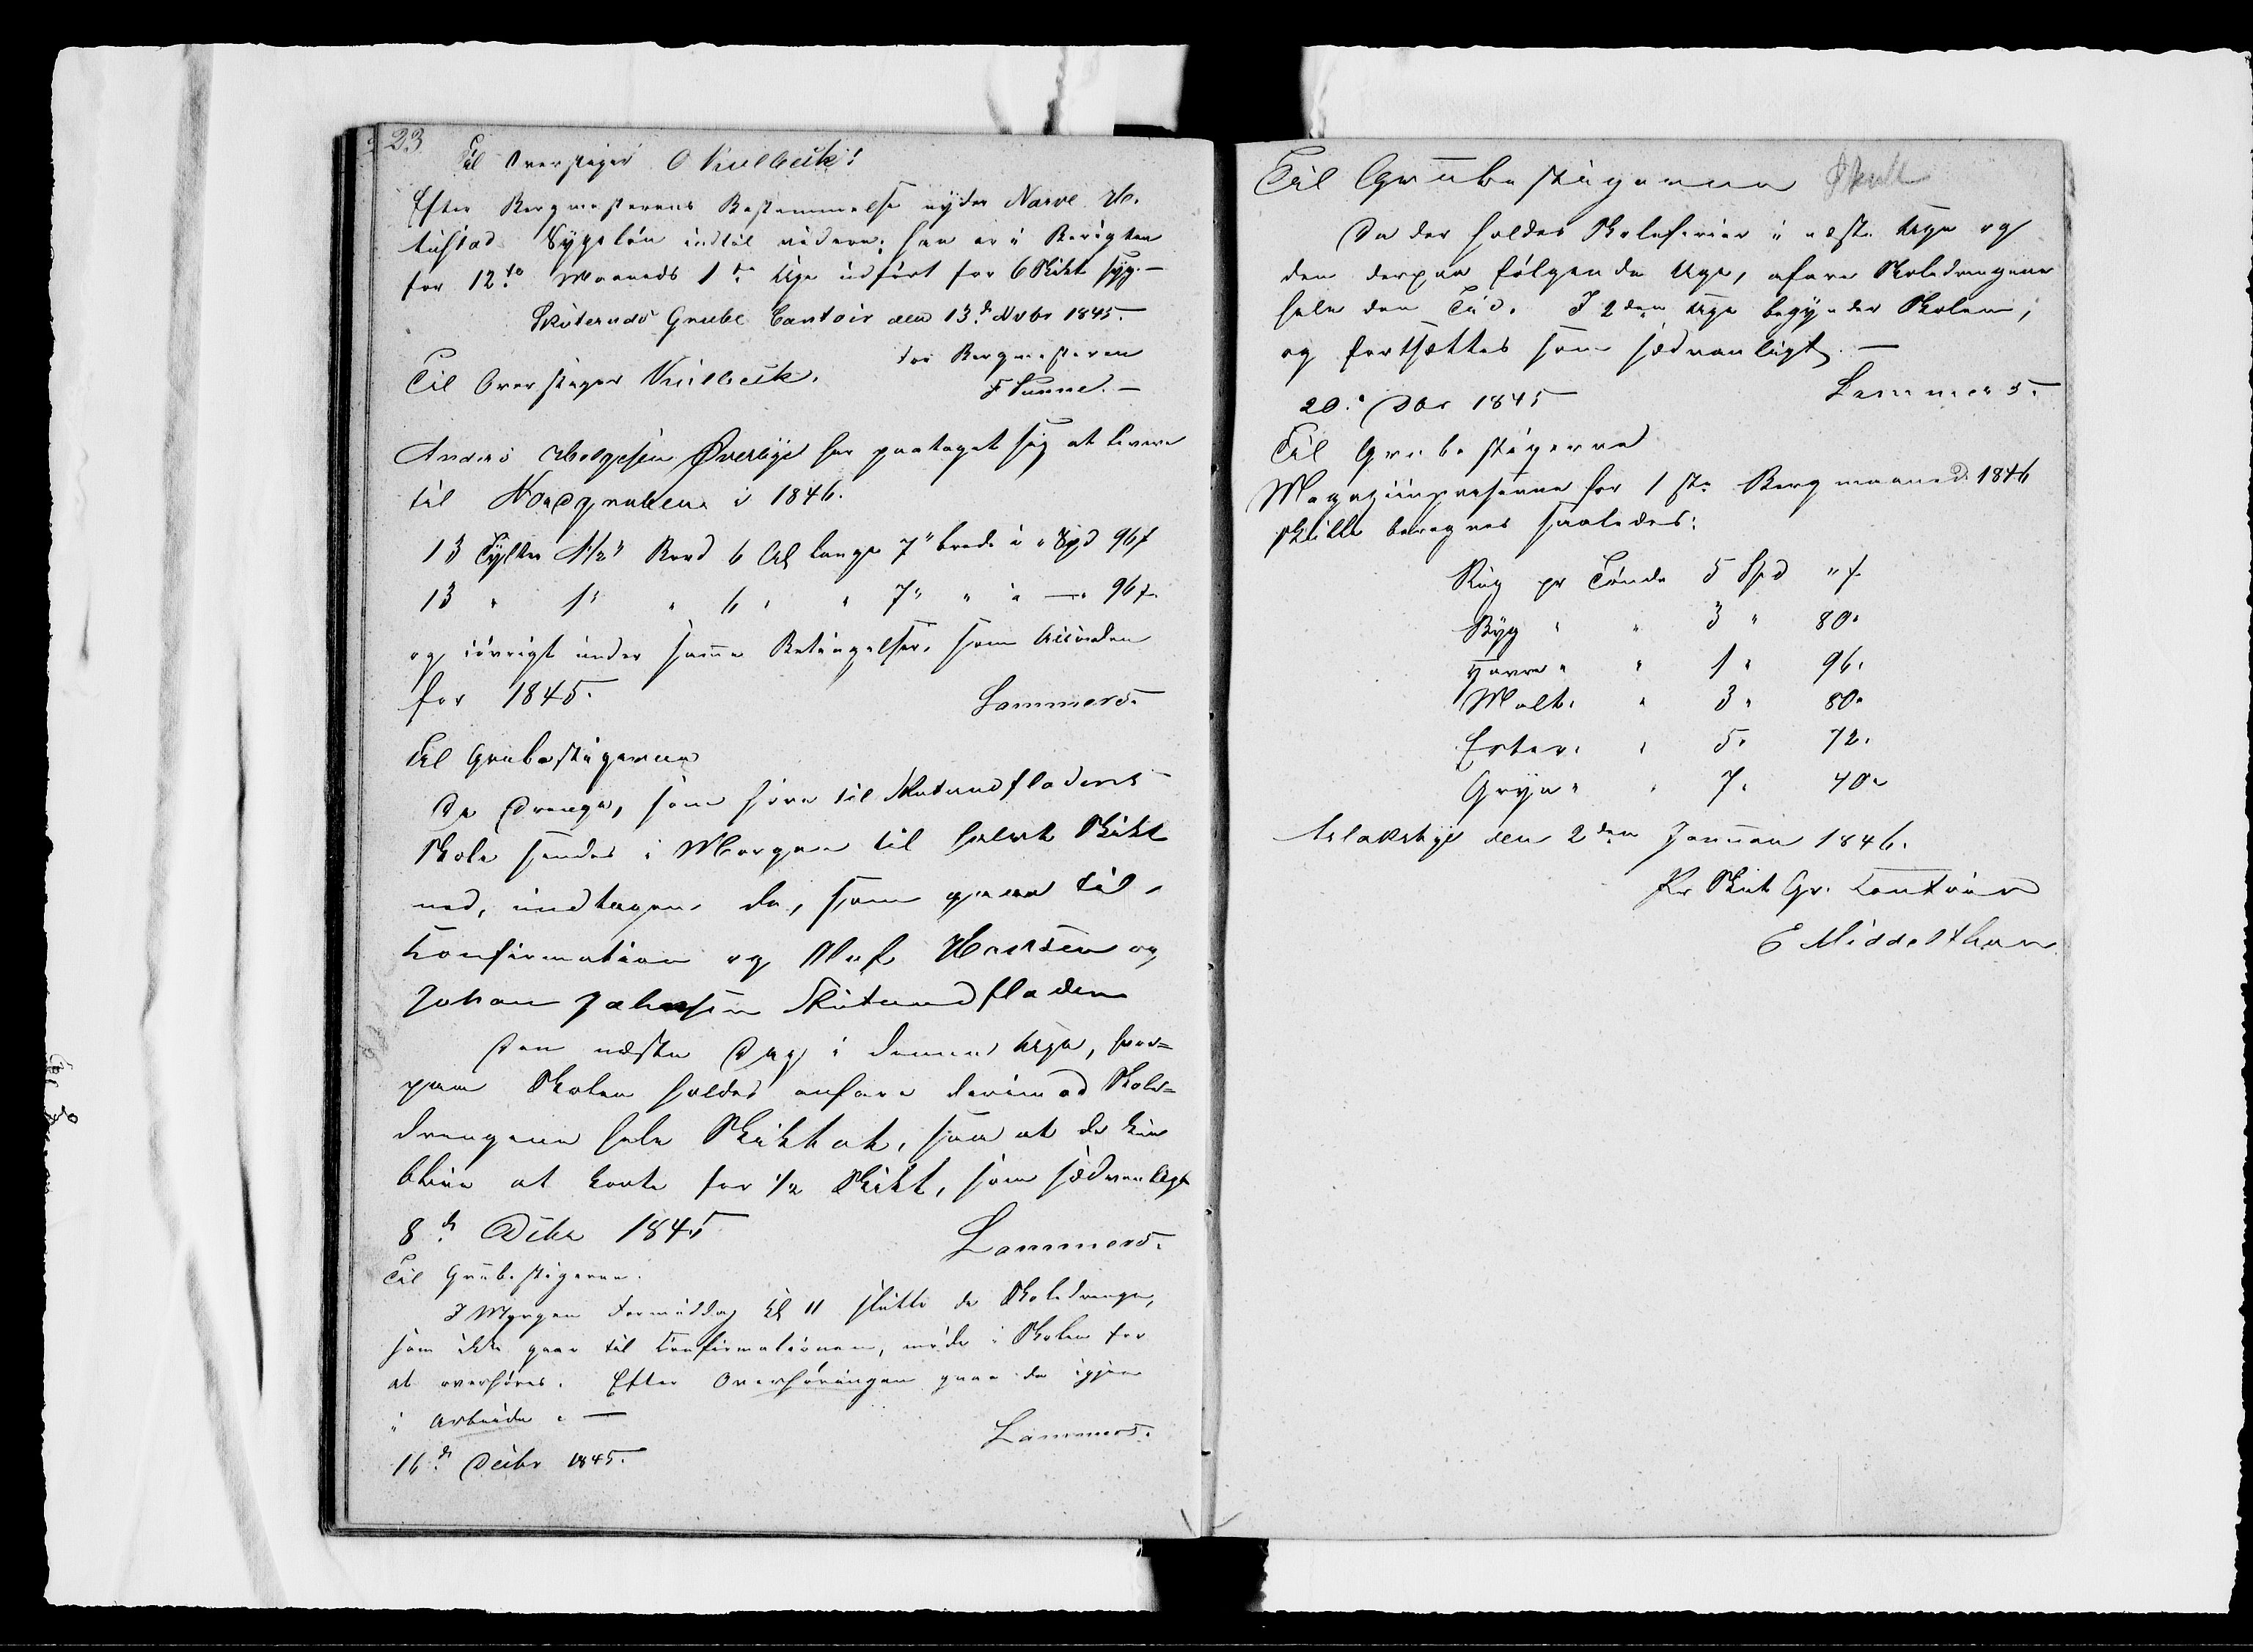 23
Til Overstiger O Kulbeck!
Efter Bergmesterens Bestemmelse nyder Narve H.
tufstad Sygeløn indtil videre; han er i Berigten
for 12te Maaneds 1ste Uge udført for 6 Skikt syg. —
Skuteruds Grube Contoir den 13de Nvbr 1845.
for Bergmesteren
Til Overstiger Kulbeck.
F Sunne. —
Anders Helgesen Øverbye har paataget sig at levere
til Nordgruben i 1846.
13 Tylter 1 1/2" Bord 6 Al lange 7" brede à " Spd 96 f
13 " 1" " 6 " " 7" " à — " 96 f.
og iøvrigt under samme Betingelser, som Accorden
for 1845.
Lammers.
Til Grubestigerne
De Drenge, som høre til Skuterudfladens
Skole sendes i Morgen til halvt Skikt
ned, undtagen de, som gaae til
Konfirmation og Oluf Hansen og
Johan Johnsen Skuterudfladen
Den næste Dag i denne Uge, hvor=
paa Skolen holdes anfare derimod Skole=
drengene hele Skiktet, saa at de kun
blive at korte for 1/2 Skikt, som sædvanligt
8de Dcbr 1845
Lammers.
Til Grubestigerne.
I Morgen Formiddag Kl 11 skulle de Skoledrenge,
som ikke gaae til Konfirmationen, møde i Skolen for
at overhøres. Efter Overhøringen gaae de igjen
i Arbeide. —
Lammers.
16de Decbr 1845.
Til Grubestigerne Skutt
Da der holdes Skoleferier i næste Uge og
den derpaa følgende Uge, afare Skoledrengene
hele den Tid. I 2den Uge begynder Skolen,
og fortsættes som sædvanligt. —
20de Dbr 1845
Lammers.
Til Grubestigerne
Magaziinpriserne for 1ste Bergmaaned 1846
skulle beregnes saaledes:
Rug pr Tønde 5 Spd " f
Byg " " 3 " 80 "
Havre " " 1 " 96 "
Malt " " 3 " 80 "
Erter " " 5 " 72 "
Gryn " " 7 " 40 "
Aslaksbye den 2den Januar 1846.
For Skut Gr. Contoir
E Middelthun